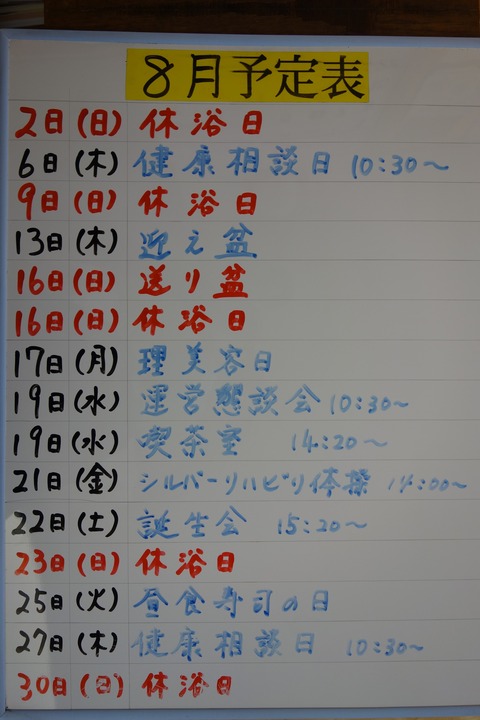 8月予定表
2日(日) 休浴日
6日(木) 健康相談日 10:30〜
9日(日) 休浴日
13日(木) 迎え盆
16日(日) 送り盆
16日(日) 休浴日
17日(月) 理美容日
19日(水) 運営懇談会 10:30〜
19日(水) 喫茶室 14:20〜
21日(金) シルバーリハビリ体操 14:00〜
22日(土) 誕生会 15:20〜
23日(日) 休浴日
25日(火) 昼食寿司の日
27日(木) 健康相談日 10:30〜
30日(日) 休浴日